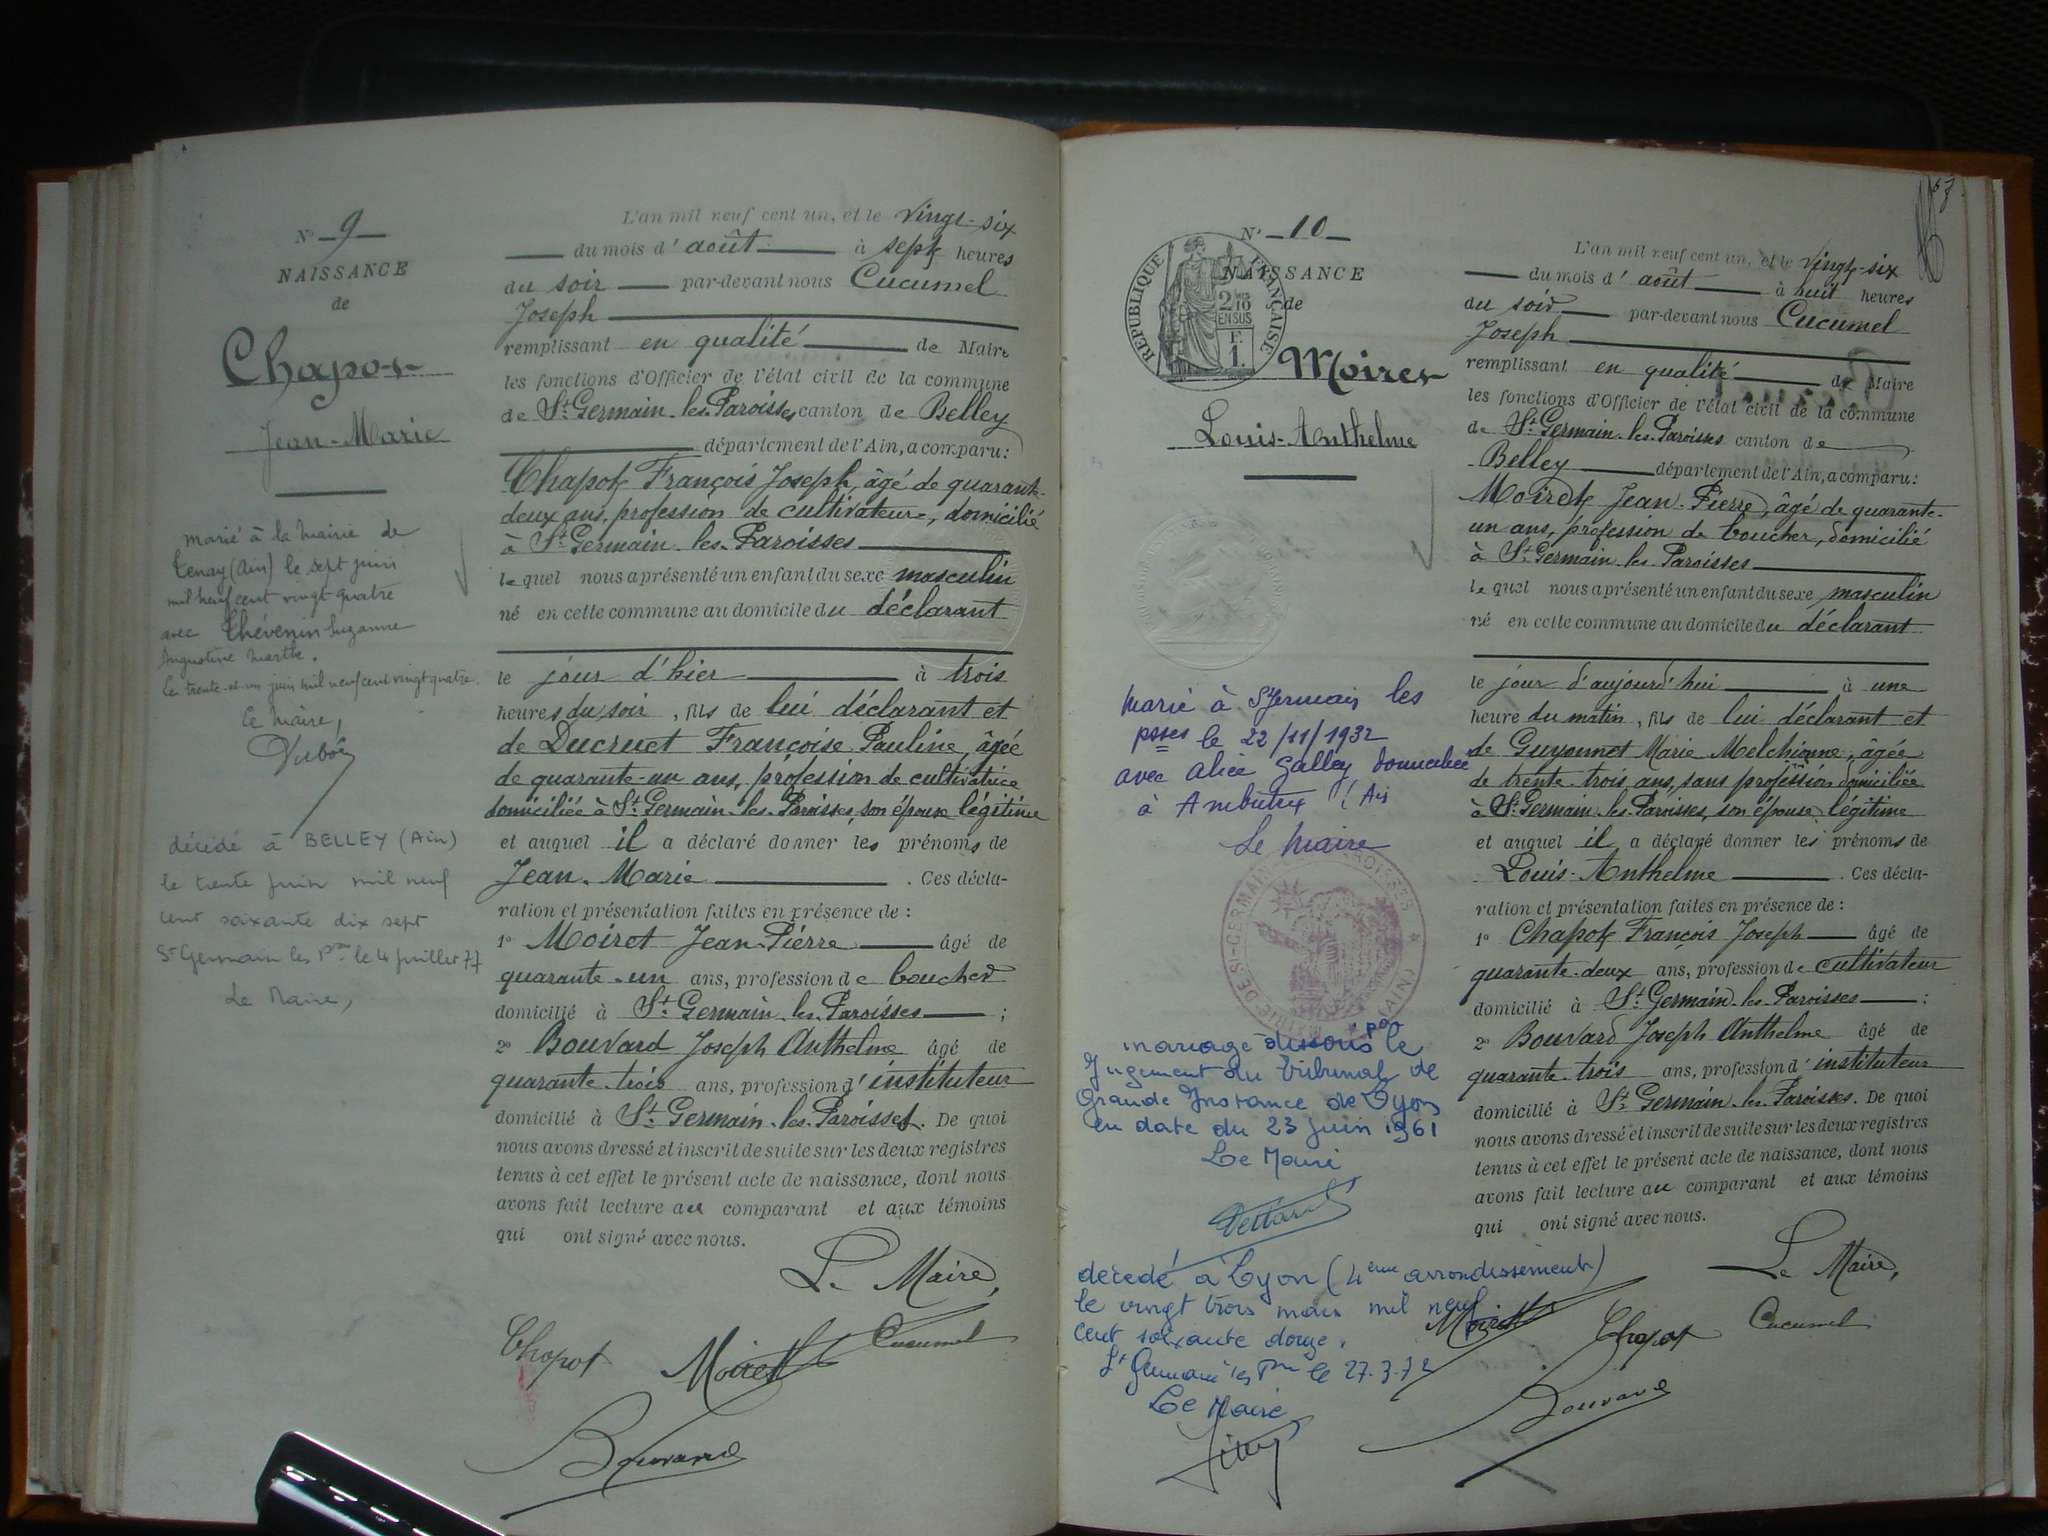 N° 9
NAISSANCE
de
Chapot
Jean-Marie
marié à la mairie de
Tenay (Ain) le sept juin
mil neuf cent vingt quatre
avec Thévenin Suzanne
Augustine Marthe.
Le trente et un juin mil neuf cent vingt quatre.
Le Maire,
décédé à BELLEY (Ain)
le trente juin mil neuf
cent soixante dix sept
St Germain les P.sses le 4 juillet 77
Le Maire,
L'an mil neuf cent un, et le vingt-six
du mois d'août à sept heures
du soir par-devant nous Cucumel
Joseph
remplissant en qualité de Maire
les fonctions d'Officier de l'état civil de la commune
de St Germain-les-Paroisses canton de Belley
département de l'Ain, a comparu:
Chapot François Joseph, âgé de quarante-
deux ans, profession de cultivateur, domicilié
à St Germain-les-Paroisses
lequel nous a présenté un enfant du sexe masculin
né en cette commune au domicile du déclarant
le jour d'hier à trois
heures du soir, fils de lui déclarant et
de Ducruet Françoise Pauline, âgée
de quarante-un ans, profession de cultivatrice
domiciliée à St Germain-les-Paroisses, son épouse légitime
et auquel il a déclaré donner les prénoms de
Jean-Marie . Ces décla-
ration et présentation faites en présence de :
1° Moiret Jean-Pierre âgé de
quarante-un ans, profession de boucher
domicilié à St Germain-les-Paroisses ;
2° Bouvard Joseph Anthelme âgé de
quarante-trois ans, profession d'instituteur
domicilié à St Germain-les-Paroisses. De quoi
nous avons dressé et inscrit de suite sur les deux registres
tenus à cet effet le présent acte de naissance, dont nous
avons fait lecture au comparant et aux témoins
qui ont signé avec nous.
Le Maire,
Chapot Moirett Cucumel
Bouvard
N° 10
NAISSANCE
de
RÉPUBLIQUE FRANÇAISE
2/10 EN SUS
F. 1.
Moiret
Louis-Anthelme
Marié à St Germain les
psses le 22/11/1932
avec Alice Galley domiciliée
à Ambutrix (Ain
Le Maire
MAIRIE DE ST-GERMAIN-LES-PAROISSES (AIN)
mariage dissous par le
Jugement du Tribunal de
Grande Instance de Lyon
en date du 23 juin 1961
Le Maire
décédé à Lyon (4ème arrondissement)
le vingt trois mars mil neuf
cent soixante douze.
St Germain les Psses le 27.3.72
Le Maire
L'an mil neuf cent un, et le vingt-six
du mois d'août à huit heures
du soir par-devant nous Cucumel
Joseph
remplissant en qualité de Maire
les fonctions d'Officier de l'état civil de la commune
de St Germain-les-Paroisses canton de
Belley département de l'Ain, a comparu:
Moirett Jean-Pierre, âgé de quarante-
un ans, profession de boucher, domicilié
à St Germain-les-Paroisses
lequel nous a présenté un enfant du sexe masculin
né en cette commune au domicile du déclarant
le jour d'aujourd'hui à une
heure du matin, fils de lui déclarant et
de Guyonnet Marie Melchionne, âgée
de trente-trois ans, sans profession, domiciliée
à St Germain-les-Paroisses, son épouse légitime
et auquel il a déclaré donner les prénoms de
Louis-Anthelme . Ces décla-
ration et présentation faites en présence de :
1° Chapot François Joseph âgé de
quarante-deux ans, profession de cultivateur
domicilié à St Germain-les-Paroisses ;
2° Bouvard Joseph Anthelme âgé de
quarante-trois ans, profession d'instituteur
domicilié à St Germain-les-Paroisses. De quoi
nous avons dressé et inscrit de suite sur les deux registres
tenus à cet effet le présent acte de naissance, dont nous
avons fait lecture au comparant et aux témoins
qui ont signé avec nous.
Le Maire,
Moirett Chapot Cucumel
Bouvard